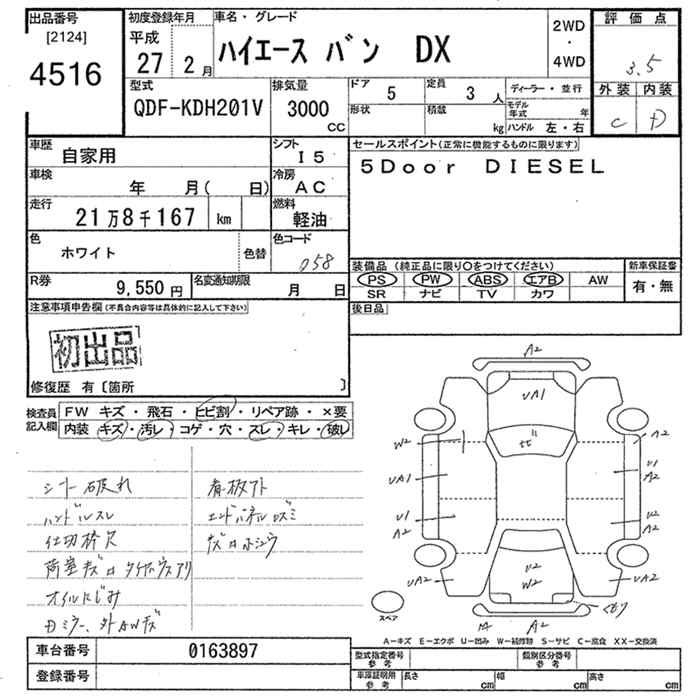 出品番号 初度登録年月 車名・グレード 2WD・4WD 評価点
[2124] 平成
4516 27 2月 ハイエース バン DX 3.5
型式 排気量 ドア 5 定員 3人 ディーラー・並行 外装 内装
QDF-KDH201V 3000 CC 形状 積載 kg モデル年式 年 C D
ハンドル 左・右
車歴 自家用 シフト I5 セールスポイント(正常に機能するものに限ります)
車検 年 月( 日) 冷房 AC 5Door DIESEL
走行 21万8千167 km 燃料 軽油
色 ホワイト 色替 色コード 058
装備品 (純正品に限り○をつけてください) 新車保証書
PS PW ABS エアB AW 有・無
SR ナビ TV カワ
R券 9,550円 名変通知期限 月 日
後日品
注意事項申告欄(不具合内容等は具体的に記入して下さい)
初出品
修復歴 有〔箇所 〕
検査員記入欄 FW キズ・飛石・ヒビ割・リペア跡・×要
内装 キズ・汚レ・コゲ・穴・スレ・キレ・破レ
シート破れ 看板アト
ハンドルスレ エンドパネル
仕切枠 キズ
荷室キズ
オイルにじみ
ミラー、外AWキズ
A2
UA1
W2 A2
UA1 U1 A2
U1 A2 U2 A2
UA2 U2 W2 UA2
スペア
A2
A-キズ E-エクボ U-凹み W-補修跡 S-サビ C-腐食 XX-交換済
車台番号 0163897 型式指定番号 参考 類別区分番号 参考
登録番号 車庫証明用 参考 長さ cm 幅 cm 高さ cm